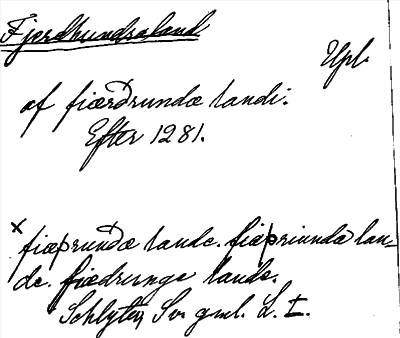 Fjordhundraland
Upl.
af fiærdrundæ landi.
Efter 1281.
x fiæþrundæ lande. fiæþriundæ lan-
de. fiædrunge lande.
Schlyter, Sv. gml. L. I.